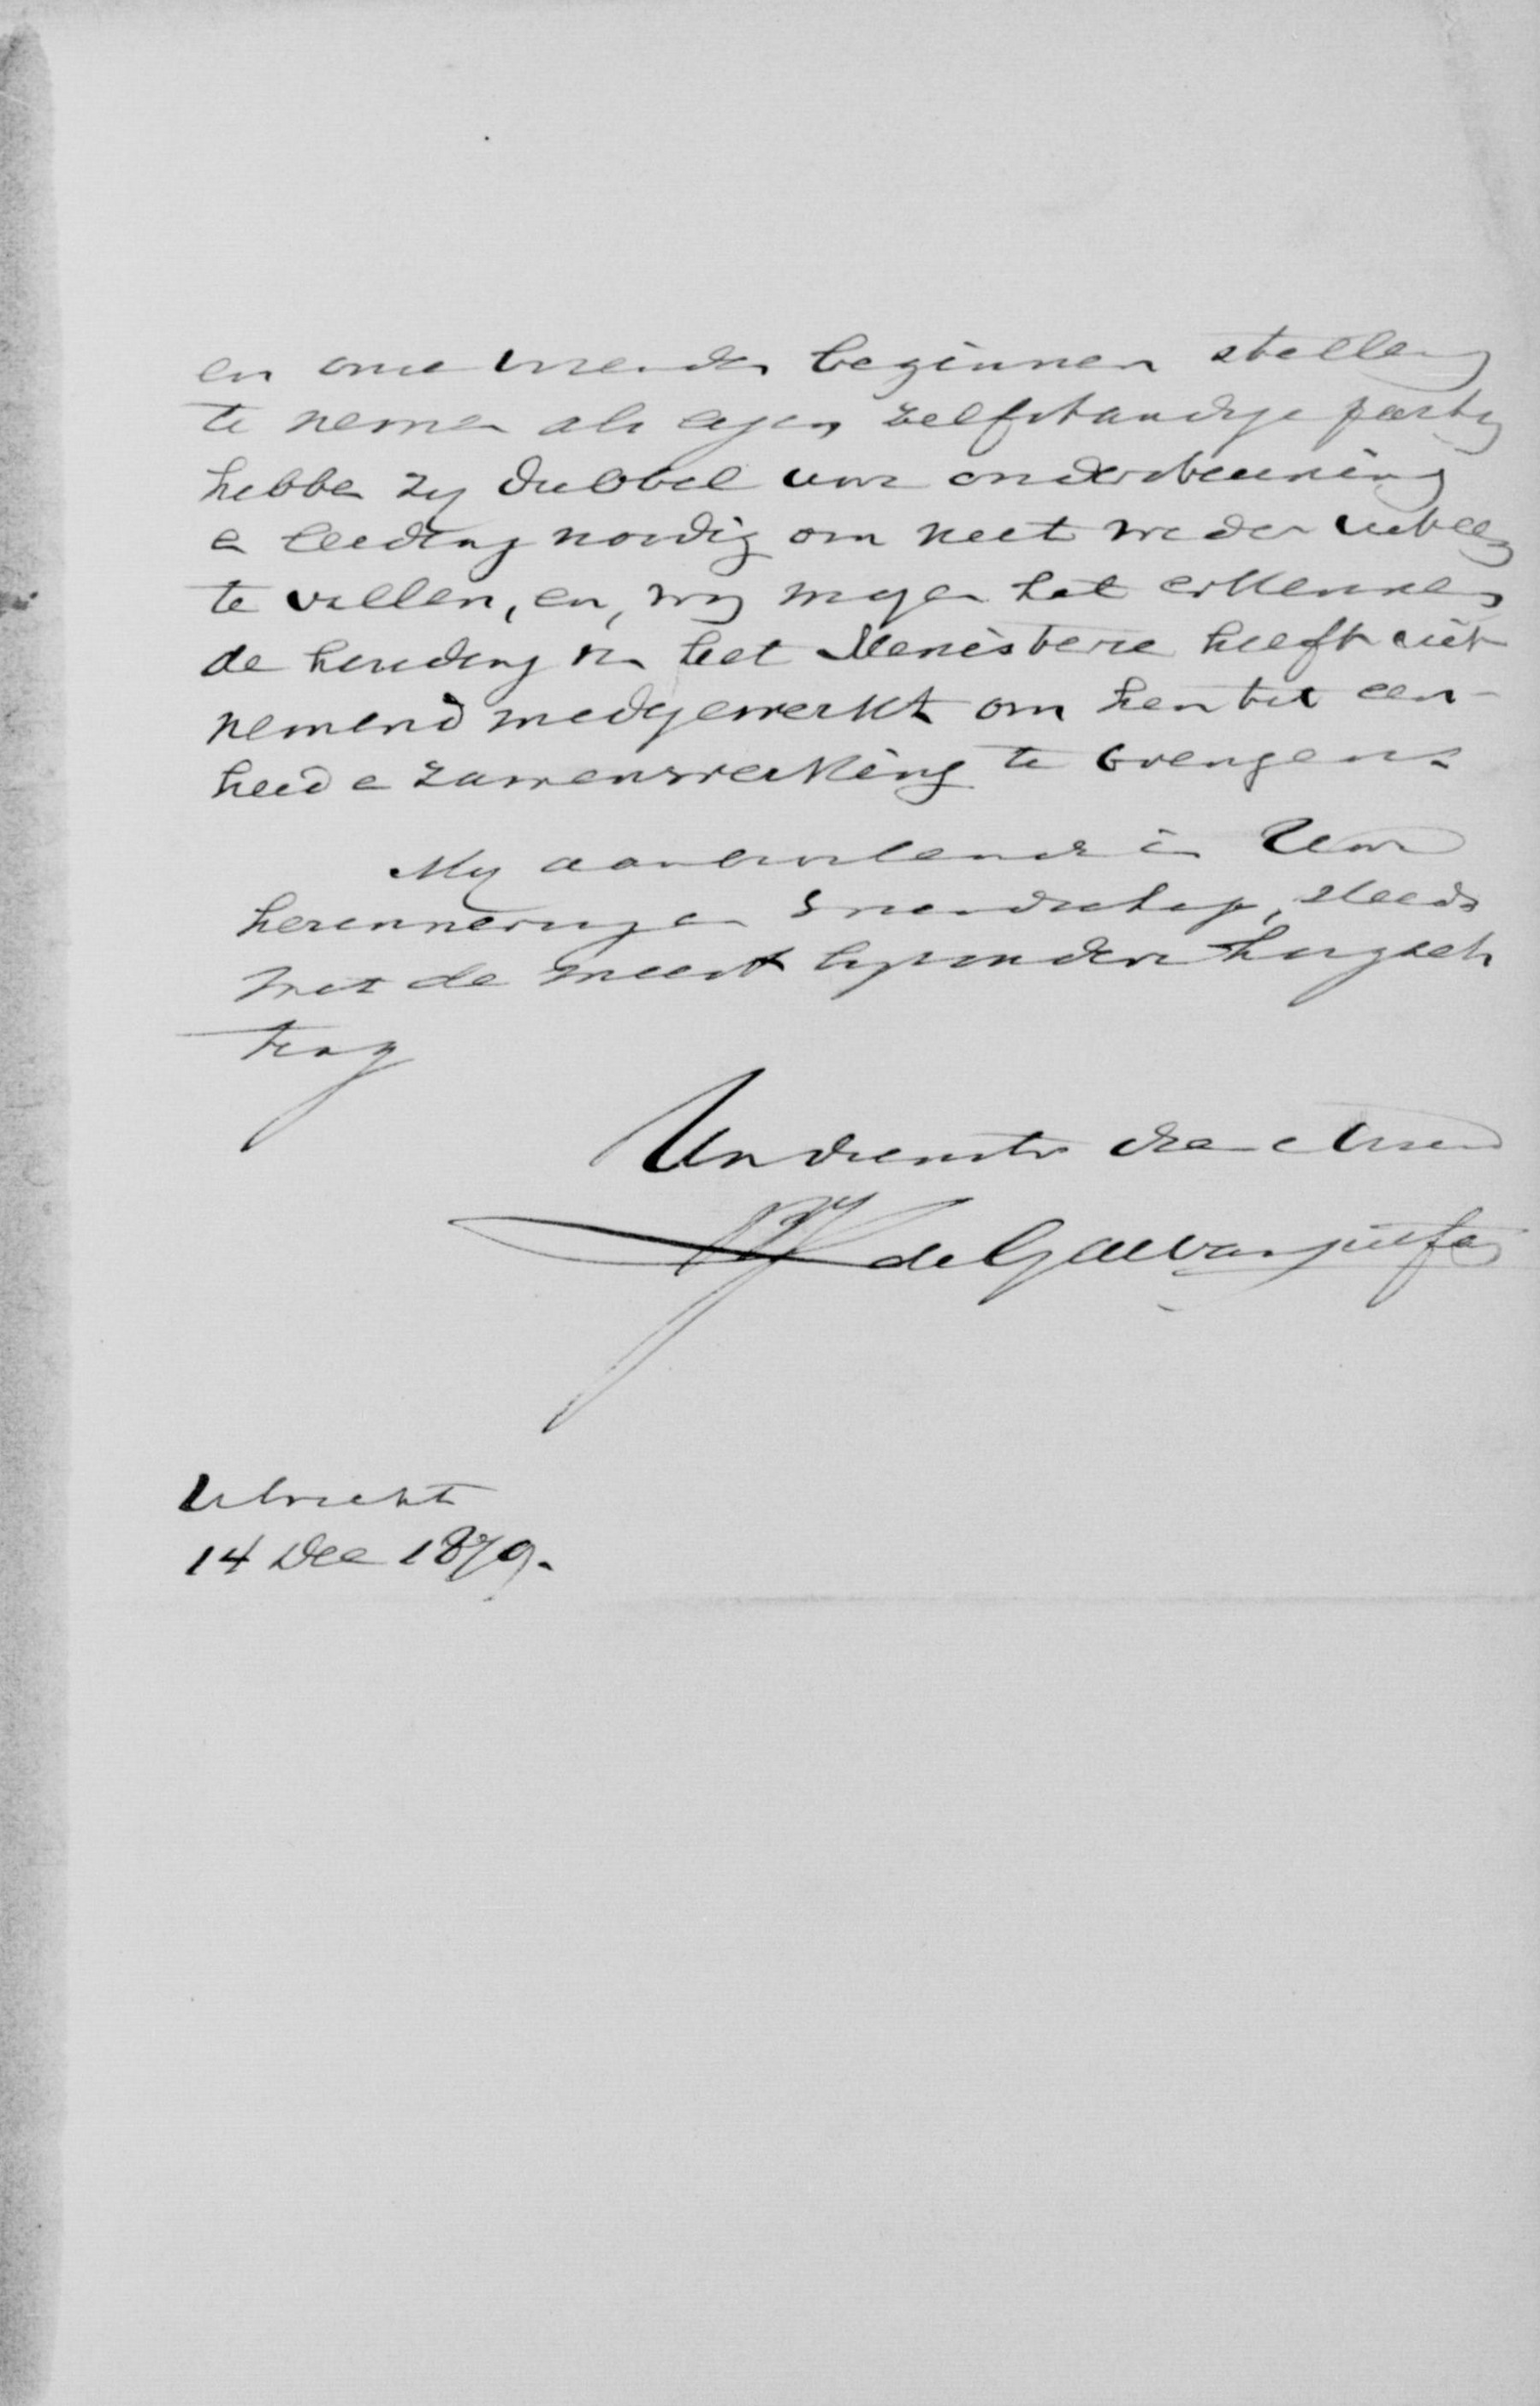 en onze vrienden beginnen stelling
te nemen als eigen zelfstandige party
hebben zy dubbel uwe ondersteuning
en leiding noodig om niet weder uit een
te vallen, en, wy mogen het erkennen,
de houding van het Ministerie heeft uit
nemend medegewerkt om hen tot een-
heid en zamenwerking te brengen.
My aanbevelende in Uwe
herinnering en vriendschap, steeds
met de meest byzondere hoogach
ting
Uw dienstw dr en Vriend
de Geer van Jutfaas
Utrecht
14 Dec 1879.